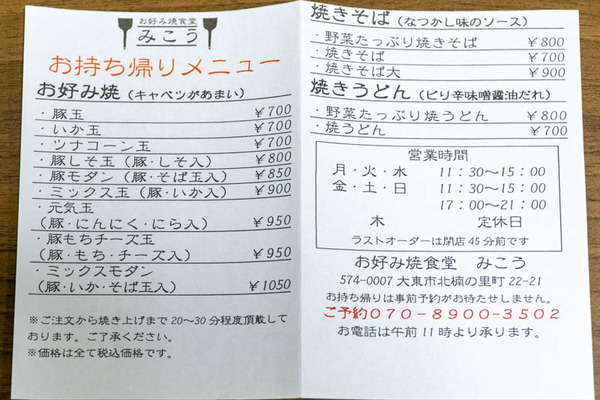 お好み焼食堂
みこう
お持ち帰りメニュー
お好み焼(キャベツがあまい)
・豚玉 ¥700
・いか玉 ¥700
・ツナコーン玉 ¥700
・豚しそ玉(豚・しそ入) ¥800
・豚モダン(豚・そば玉入) ¥850
・ミックス玉(豚・いか入) ¥900
・元気玉
(豚・にんにく・にら入) ¥950
・豚もちチーズ玉
(豚・もち・チーズ入) ¥950
・ミックスモダン
(豚・いか・そば玉入) ¥1050
※ご注文から焼き上げまで20〜30分程度頂戴して
おります。ご了承ください。
※価格は全て税込価格です。
焼きそば(なつかし味のソース)
・野菜たっぷり焼きそば ¥800
・焼きそば ¥700
・焼きそば大 ¥900
焼きうどん(ピリ辛味噌醤油だれ)
・野菜たっぷり焼うどん ¥800
・焼うどん ¥700
営業時間
月・火・水 11:30〜15:00
金・土・日 11:30〜15:00
17:00〜21:00
木 定休日
ラストオーダーは閉店45分前です
お好み焼食堂 みこう
574-0007 大東市北楠の里町22-21
お持ち帰りは事前予約がお待たせしません。
ご予約070-8900-3502
お電話は午前11時より承ります。